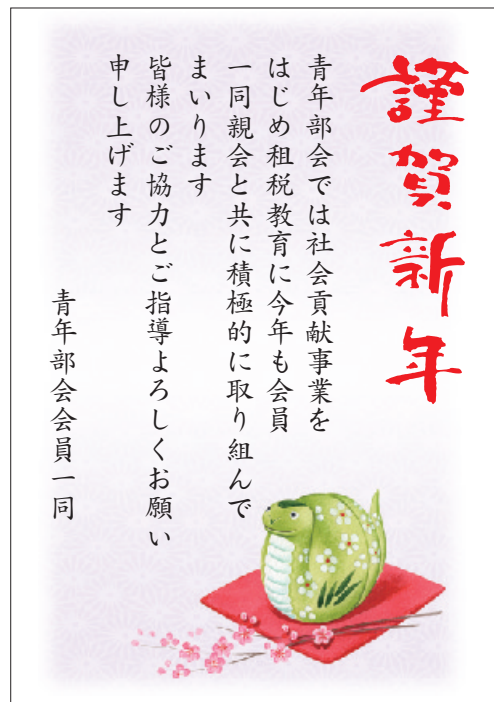 謹賀新年
青年部会では社会貢献事業を
はじめ租税教育に今年も会員
一同親会と共に積極的に取り組んで
まいります
皆様のご協力とご指導よろしくお願い
申し上げます
青年部会会員一同